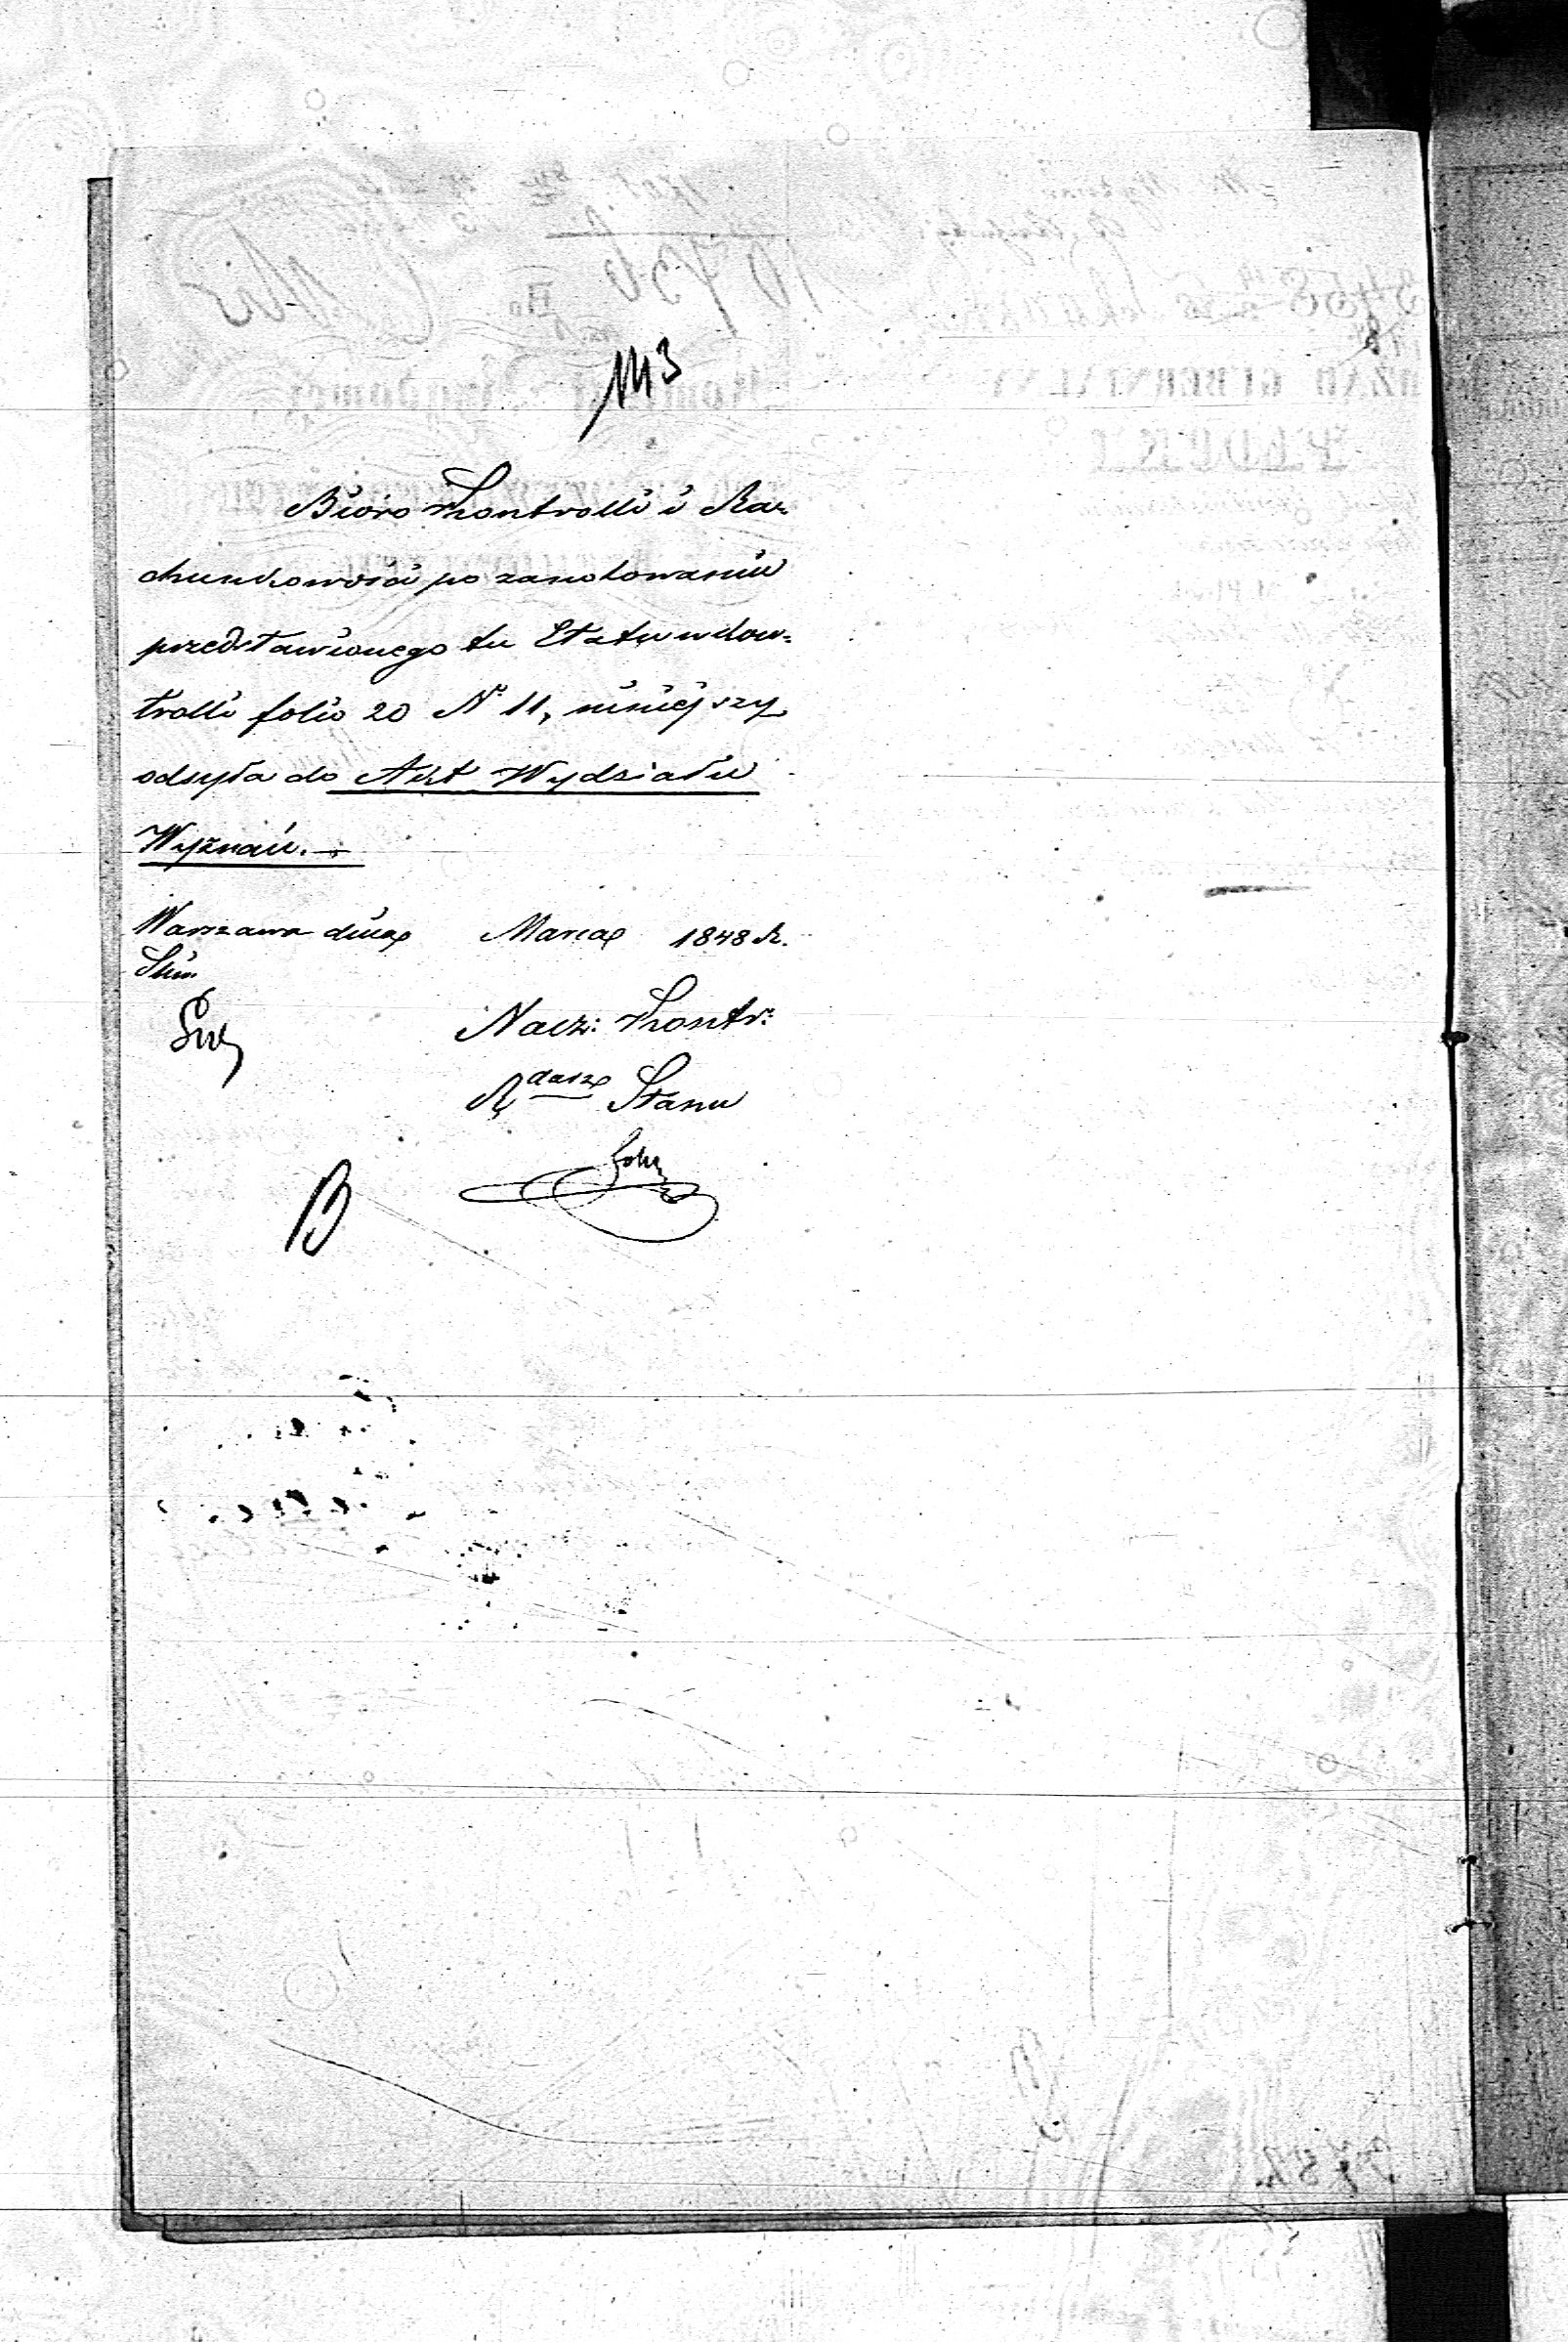 143
Bióro Kontrolli i Ra-
chunkowości po zanotowaniu
przedstawionego tu Etatu w Kon-
trolli folio 20 No 11, niniejszy
odsyła do Akt Wydziału
Wyznań.
Warszawa dnia Marca 1848 R.
Nacz: Kontr:
Rdarz Stanu
B